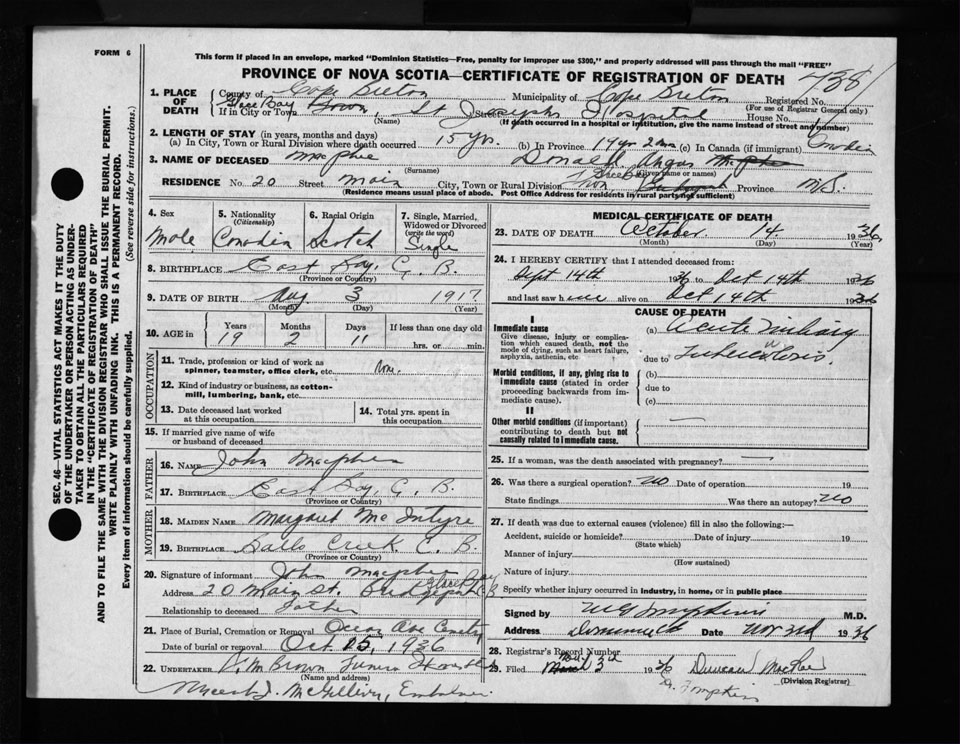 FORM 6
This form if placed in an envelope, marked "Dominion Statistics—Free, penalty for improper use $300," and properly addressed will pass through the mail "FREE"
PROVINCE OF NOVA SCOTIA—CERTIFICATE OF REGISTRATION OF DEATH
738
SEC. 46—VITAL STATISTICS ACT MAKES IT THE DUTY
OF THE UNDERTAKER OR PERSON ACTING AS UNDER-
TAKER TO OBTAIN ALL THE PARTICULARS REQUIRED
IN THE "CERTIFICATE OF REGISTRATION OF DEATH"
AND TO FILE THE SAME WITH THE DIVISION REGISTRAR WHO SHALL ISSUE THE BURIAL PERMIT.
WRITE PLAINLY WITH UNFADING INK. THIS IS A PERMANENT RECORD.
Every item of information should be carefully supplied. (See reverse side for instructions.)
1. PLACE OF DEATH County of Cape Breton Municipality of Cape Breton Registered No.
(For use of Registrar General only)
If in City or Town Glace Bay Street St Joseph's Hospital House No.
(Name) (If death occurred in a hospital or institution, give the name instead of street and number)
2. LENGTH OF STAY (in years, months and days)
(a) In City, Town or Rural Division where death occurred 15 yrs. (b) In Province 19 yr 2 mos (c) In Canada (if immigrant)
3. NAME OF DECEASED MacPhee Donald Angus
(Surname) (Given name or names)
RESIDENCE No. 20 Street Main City, Town or Rural Division Province N.S.
(Residence means usual place of abode. Post Office Address for residents in rural parts not sufficient)
4. Sex Male
5. Nationality (Citizenship)
6. Racial Origin Scotch
7. Single, Married, Widowed or Divorced (write the word) Single
8. BIRTHPLACE East Bay, C. B.
(Province or Country)
9. DATE OF BIRTH Aug 3 1917
(Month) (Day) (Year)
10. AGE in Years 19 Months 2 Days 11 If less than one day old hrs. or min.
OCCUPATION
11. Trade, profession or kind of work as spinner, teamster, office clerk, etc. None.
12. Kind of industry or business, as cotton-mill, lumbering, bank, etc.
13. Date deceased last worked at this occupation
14. Total yrs. spent in this occupation
15. If married give name of wife or husband of deceased
FATHER
16. NAME John Macphee
17. BIRTHPLACE East Bay, C. B.
(Province or Country)
MOTHER
18. MAIDEN NAME Margaret McIntyre
19. BIRTHPLACE Creek C. B.
(Province or Country)
20. Signature of informant John Macphee
Address 20 Main St. Glace Bay
Relationship to deceased Father
21. Place of Burial, Cremation or Removal
Date of burial or removal Oct. 15, 1936
22. UNDERTAKER V. M. Brown Funeral
(Name and address)
McGillivry, Embalmer.
MEDICAL CERTIFICATE OF DEATH
23. DATE OF DEATH October 14 1936
(Month) (Day) (Year)
24. I HEREBY CERTIFY that I attended deceased from:
Sept 14th 1936 to Oct 14th 1936
and last saw him alive on Oct 14th 1936
CAUSE OF DEATH
I
Immediate cause
Give disease, injury or complication which caused death, not the mode of dying, such as heart failure, asphyxia, asthenia, etc
(a) Acute Miliary
due to Tuberculosis
Morbid conditions, if any, giving rise to immediate cause (stated in order proceeding backwards from immediate cause).
(b)
due to
(c)
II
Other morbid conditions (if important) contributing to death but not causally related to immediate cause.
25. If a woman, was the death associated with pregnancy?
26. Was there a surgical operation? No Date of operation 19
State findings Was there an autopsy? No
27. If death was due to external causes (violence) fill in also the following:—
Accident, suicide or homicide? Date of injury 19
(State which)
Manner of injury
(How sustained)
Nature of injury
Specify whether injury occurred in industry, in home, or in public place
Signed by M.D.
Address Dominion Date Nov 3rd 1936
28. Registrar's Record Number
29. Filed Nov 3rd 1936 Duncan MacPhee
(Division Registrar)
Dr. Tompkins